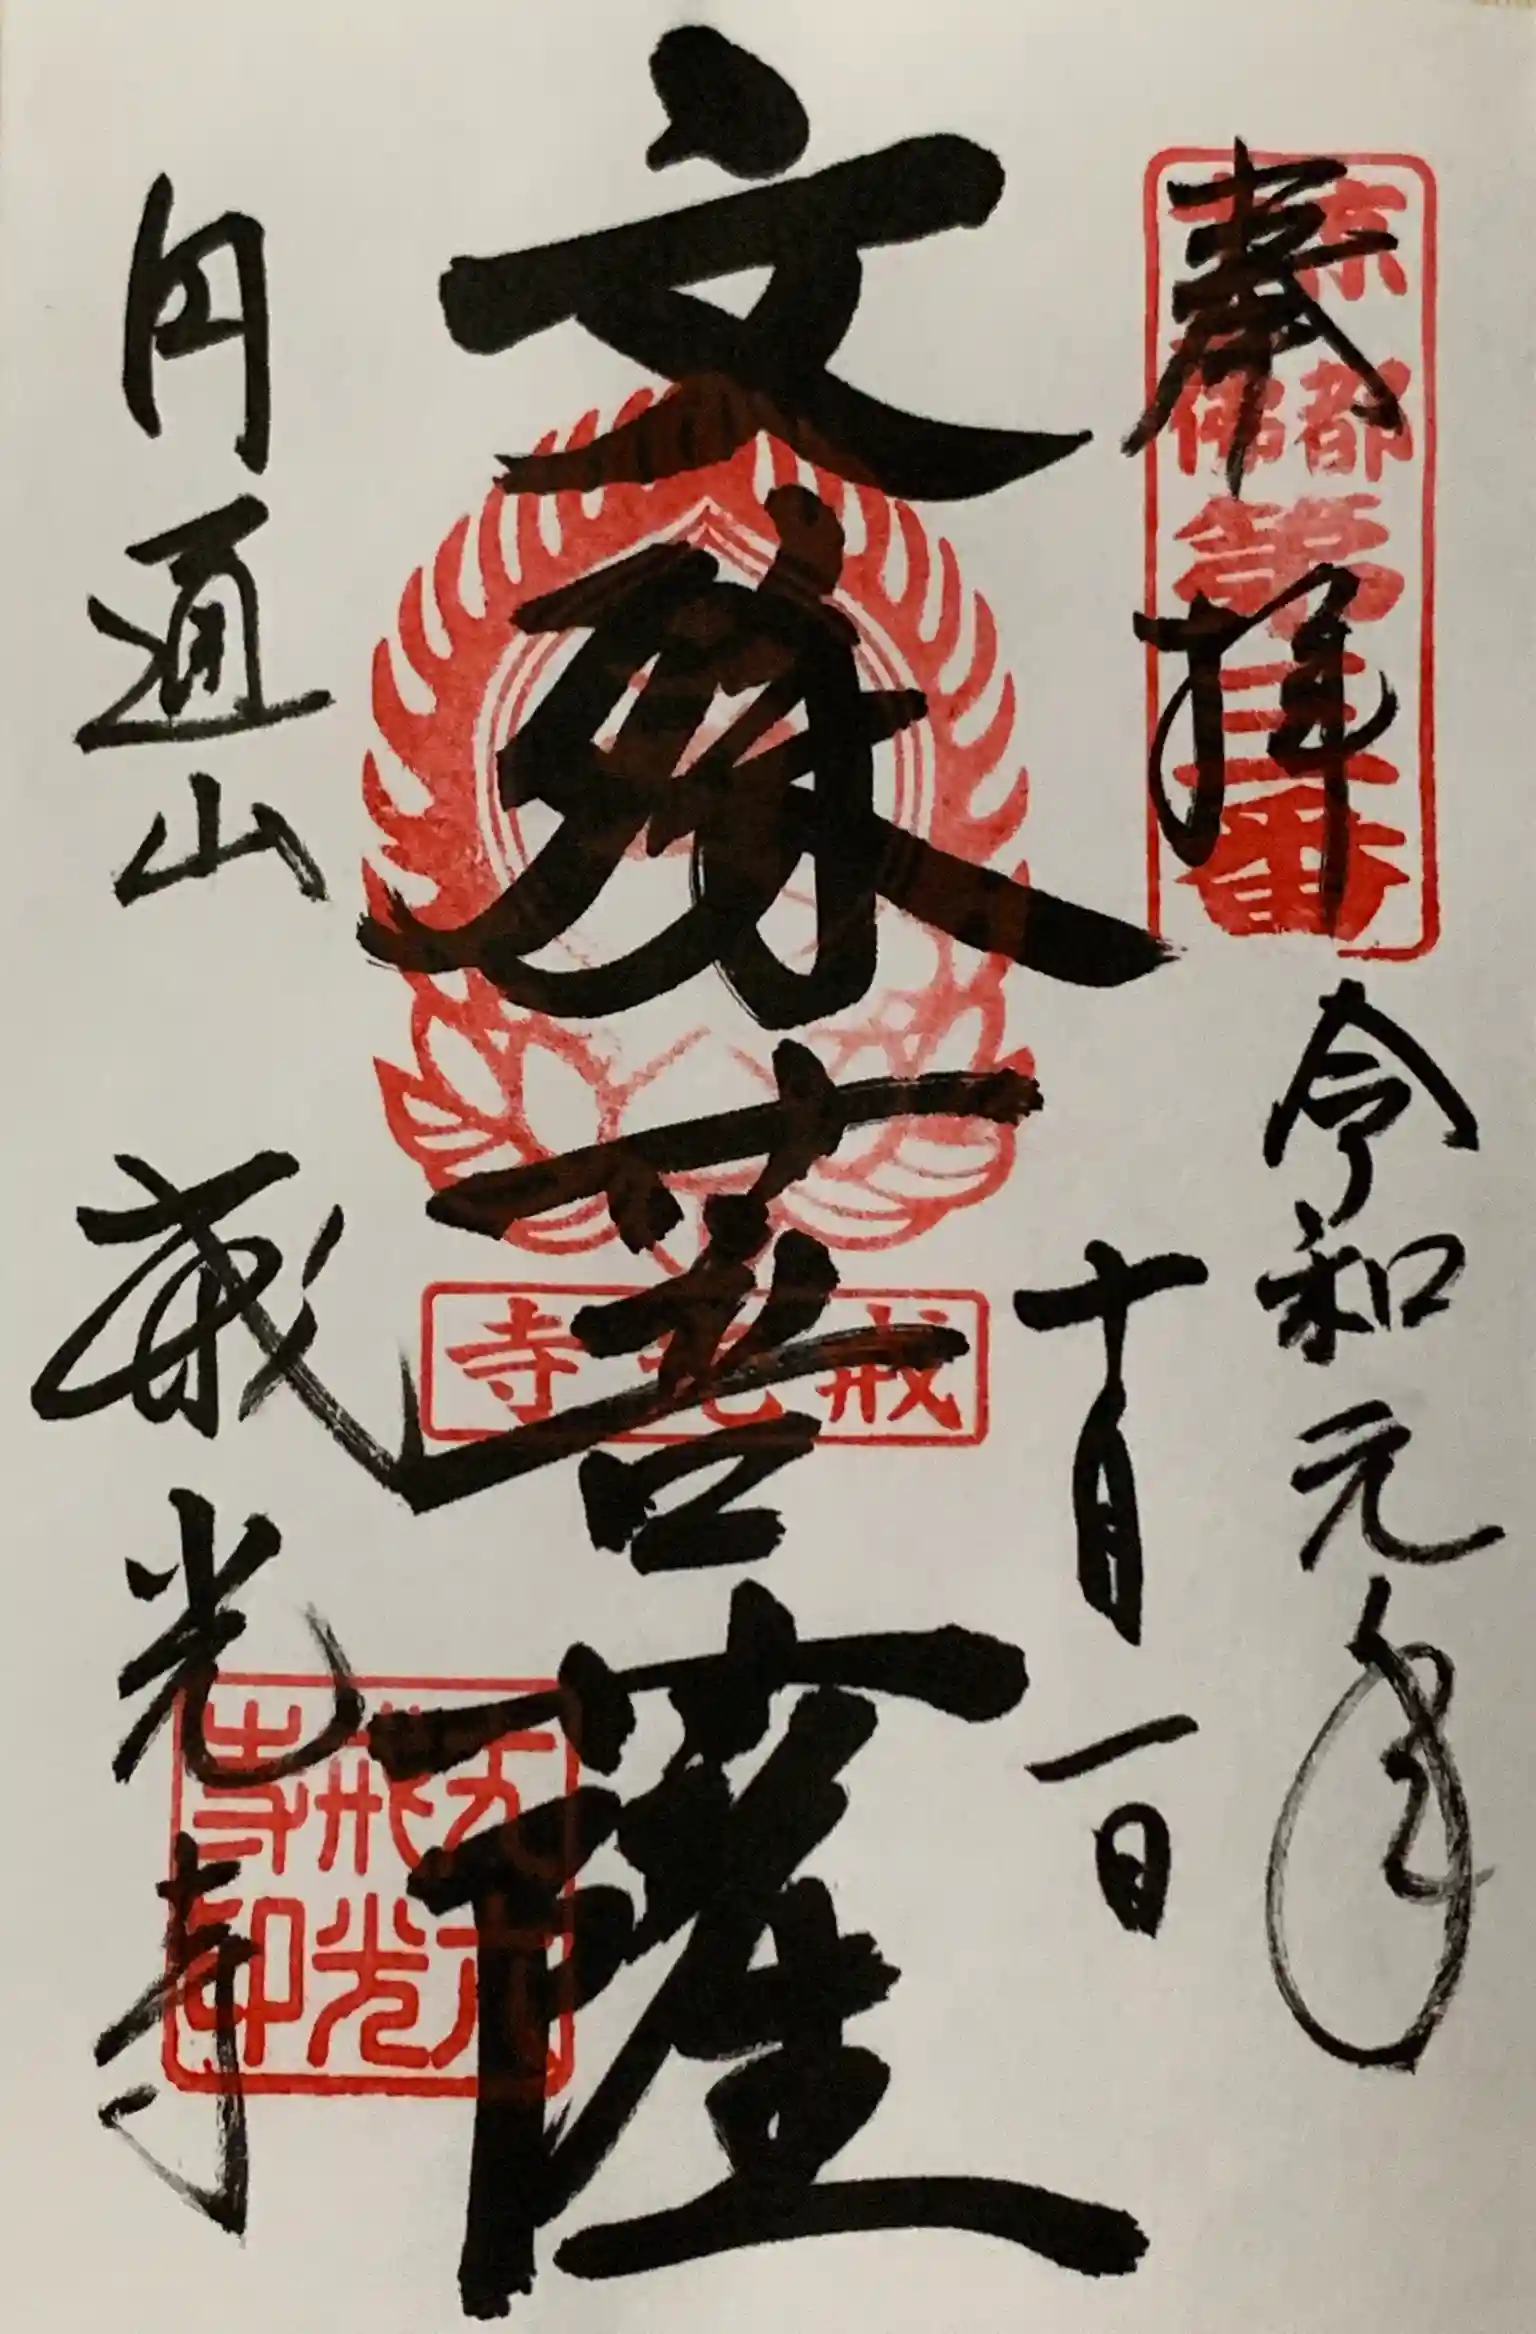 奉拝
京都
十三佛
第三番
令和元年
十月一日
文殊菩薩
戒光寺
円通山
戒光寺
丈六
戒光
寺印